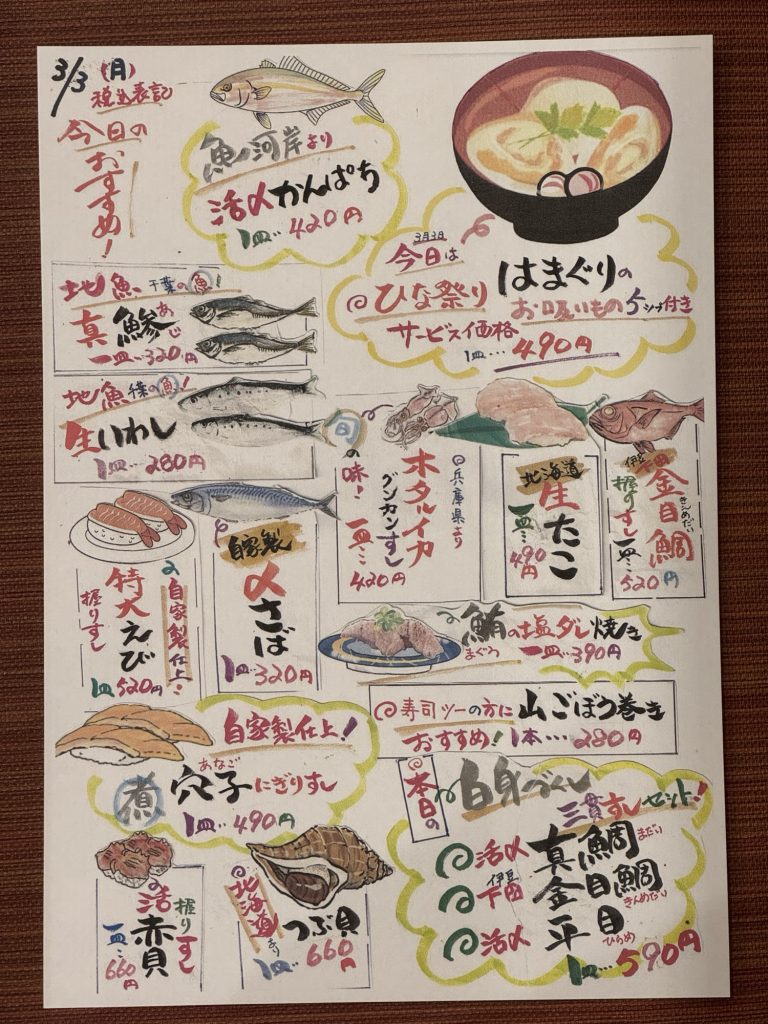 3/3 (月)
税込表記
今日の
おすすめ!
魚河岸より
活〆かんぱち
1皿…420円
3月3日
今日は
ひな祭り
はまぐりの
お吸いもの
付き
サービス価格
1皿…490円
地魚 千葉の魚!
真鯵
あじ
一皿…320円
地魚 千葉の魚!
生いわし
1皿…280円
旬の味!
兵庫県より
ホタルイカ
グンカンすし
一皿…420円
北海道
生たこ
一皿…490円
伊豆下田
金目鯛
きんめだい
握りすし
一皿…520円
自家製仕上!
特大えび
握りすし
1皿520円
自家製
〆さば
1皿…320円
鮪の塩ダレ焼き
まぐろ
一皿…390円
寿司ツーの方に
おすすめ!
山ごぼう巻き
1本…280円
自家製仕上!
あなご
煮穴子にぎりすし
1皿…490円
本日の
白身づくし
三貫すしセット!
活〆 真鯛 まだい
伊豆下田 金目鯛 きんめだい
活〆 平目 ひらめ
1皿…590円
活赤貝
握りすし
一皿…660円
北海道より
つぶ貝
1皿…660円